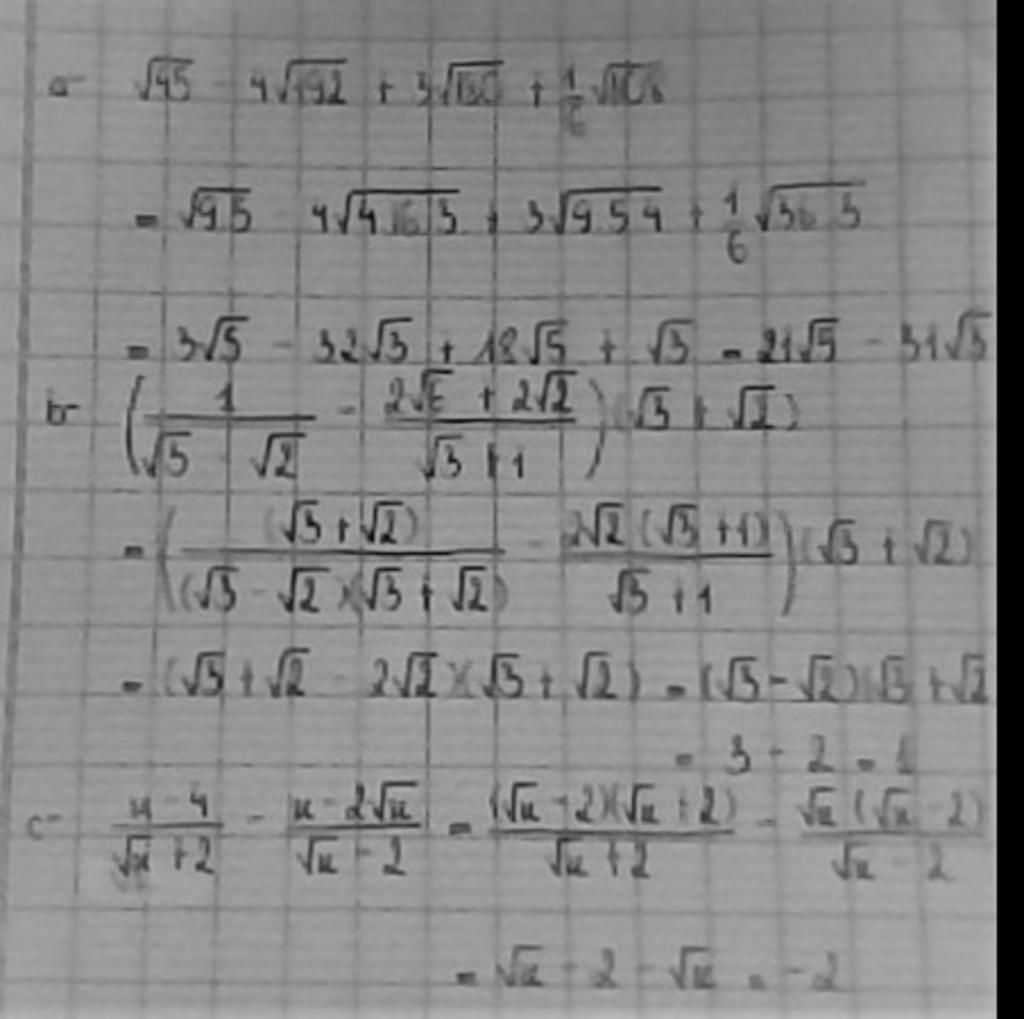 a- √45 - 4√192 + 3√180 + 1/6 √108
= √9.5 - 4√4.16.3 + 3√9.5.4 + 1/6 √36.3
= 3√5 - 32√3 + 18√5 + √3 = 21√5 - 31√3
b- (1/(√3 - √2) - (2√6 + 2√2)/(√3 + 1)) (√3 + √2)
= ((√3 + √2)/((√3 - √2)(√3 + √2)) - 2√2(√3 + 1)/(√3 + 1)) (√3 + √2)
= (√3 + √2 - 2√2)(√3 + √2) = (√3 - √2)(√3 + √2
= 3 - 2 = 1
c- (x - 4)/(√x + 2) - (x - 2√x)/(√x - 2) = (√x - 2)(√x + 2)/(√x + 2) - √x(√x - 2)/(√x - 2)
= √x - 2 - √x = -2